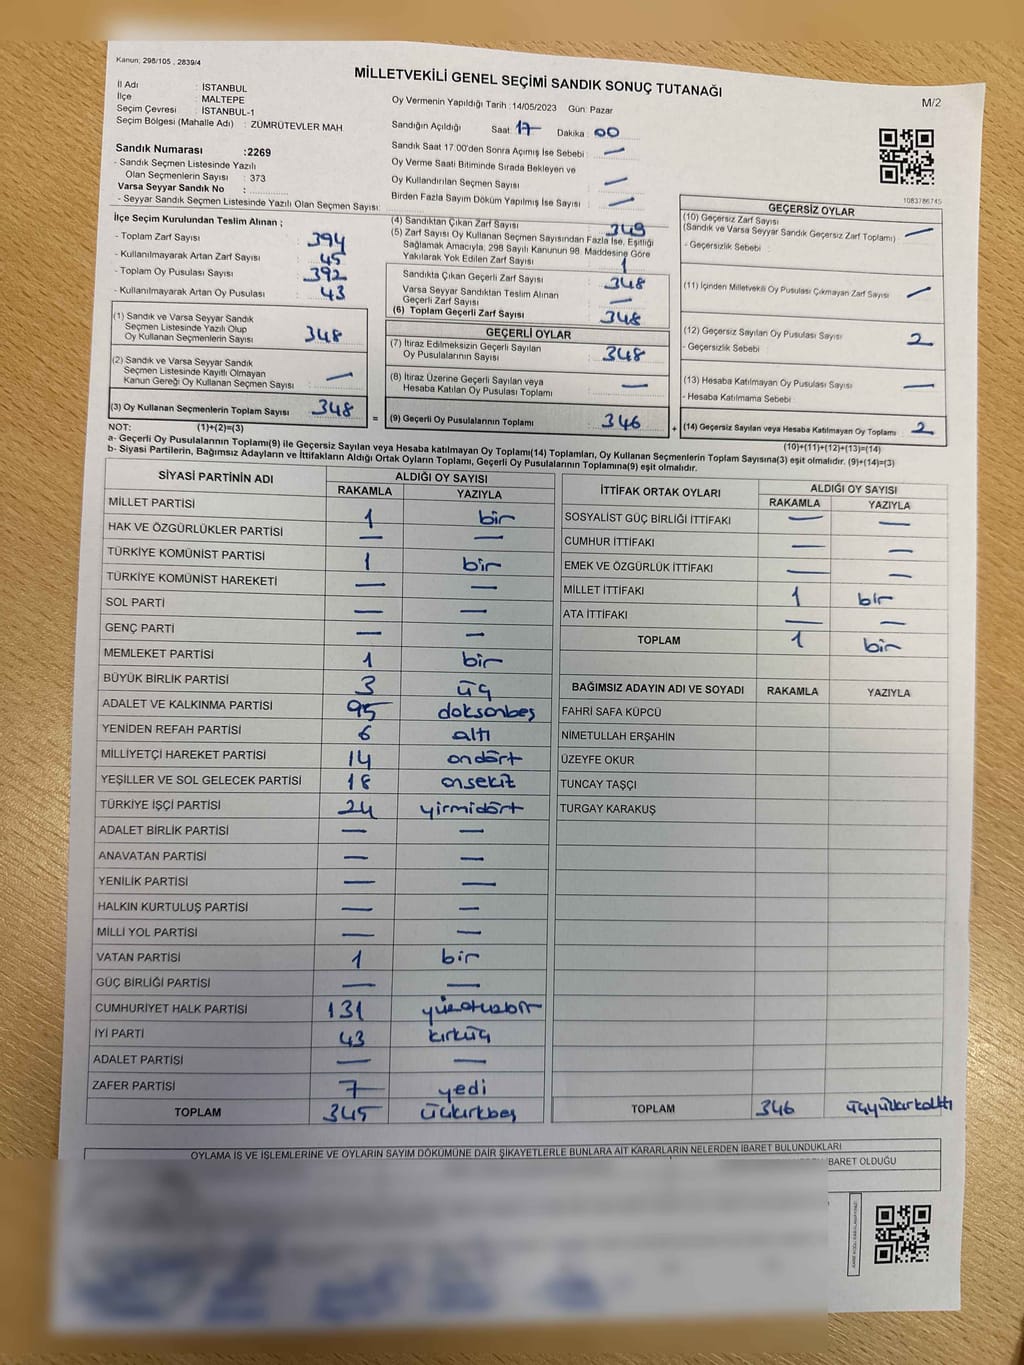 Kanun, 298/105 , 2839/4
MİLLETVEKİLİ GENEL SEÇİMİ SANDIK SONUÇ TUTANAĞI
M/2
İl Adı : İSTANBUL
İlçe : MALTEPE
Seçim Çevresi : İSTANBUL-1
Seçim Bölgesi (Mahalle Adı) : ZÜMRÜTEVLER MAH
Sandık Numarası :2269
- Sandık Seçmen Listesinde Yazılı
Olan Seçmenlerin Sayısı : 373
Varsa Seyyar Sandık No :
- Seyyar Sandık Seçmen Listesinde Yazılı Olan Seçmen Sayısı:
Oy Vermenin Yapıldığı Tarih :14/05/2023 Gün: Pazar
Sandığın Açıldığı Saat: 17 Dakika : 00
Sandık Saat 17:00'den Sonra Açılmış İse Sebebi : —
Oy Verme Saati Bitiminde Sırada Bekleyen ve
Oy Kullandırılan Seçmen Sayısı : —
Birden Fazla Sayım Döküm Yapılmış İse Sayısı : —
1083786745
İlçe Seçim Kurulundan Teslim Alınan ;
- Toplam Zarf Sayısı : 394
- Kullanılmayarak Artan Zarf Sayısı : 45
- Toplam Oy Pusulası Sayısı : 392
- Kullanılmayarak Artan Oy Pusulası : 43
(1) Sandık ve Varsa Seyyar Sandık
Seçmen Listesinde Yazılı Olup
Oy Kullanan Seçmenlerin Sayısı : 348
(2) Sandık ve Varsa Seyyar Sandık
Seçmen Listesinde Kayıtlı Olmayan
Kanun Gereği Oy Kullanan Seçmen Sayısı : —
(3) Oy Kullanan Seçmenlerin Toplam Sayısı : 348
(4) Sandıktan Çıkan Zarf Sayısı : 349
(5) Zarf Sayısı Oy Kullanan Seçmen Sayısından Fazla İse, Eşitliği
Sağlamak Amacıyla, 298 Sayılı Kanunun 98. Maddesine Göre
Yakılarak Yok Edilen Zarf Sayısı : 1
Sandıkta Çıkan Geçerli Zarf Sayısı : 348
Varsa Seyyar Sandıktan Teslim Alınan
Geçerli Zarf Sayısı : —
(6) Toplam Geçerli Zarf Sayısı : 348
GEÇERLİ OYLAR
(7) İtiraz Edilmeksizin Geçerli Sayılan
Oy Pusulalarının Sayısı : 348
(8) İtiraz Üzerine Geçerli Sayılan veya
Hesaba Katılan Oy Pusulası Toplamı : —
= (9) Geçerli Oy Pusulalarının Toplamı : 346
GEÇERSİZ OYLAR
(10) Geçersiz Zarf Sayısı
(Sandık ve Varsa Seyyar Sandık Geçersiz Zarf Toplamı) : —
- Geçersizlik Sebebi :
(11) İçinden Milletvekili Oy Pusulası Çıkmayan Zarf Sayısı : —
(12) Geçersiz Sayılan Oy Pusulası Sayısı : 2
- Geçersizlik Sebebi :
(13) Hesaba Katılmayan Oy Pusulası Sayısı : —
- Hesaba Katılmama Sebebi :
+ (14) Geçersiz Sayılan veya Hesaba Katılmayan Oy Toplamı : 2
NOT: (1)+(2)=(3)
(10)+(11)+(12)+(13)=(14)
a- Geçerli Oy Pusulalarının Toplamı(9) ile Geçersiz Sayılan veya Hesaba katılmayan Oy Toplamı(14) Toplamları, Oy Kullanan Seçmenlerin Toplam Sayısına(3) eşit olmalıdır. (9)+(14)=(3)
b- Siyasi Partilerin, Bağımsız Adayların ve İttifakların Aldığı Ortak Oyların Toplamı, Geçerli Oy Pusulalarının Toplamına(9) eşit olmalıdır.
SİYASİ PARTİNİN ADI ALDIĞI OY SAYISI
RAKAMLA YAZIYLA
MİLLET PARTİSİ 1 bir
HAK VE ÖZGÜRLÜKLER PARTİSİ — —
TÜRKİYE KOMÜNİST PARTİSİ 1 bir
TÜRKİYE KOMÜNİST HAREKETİ — —
SOL PARTİ — —
GENÇ PARTİ — —
MEMLEKET PARTİSİ 1 bir
BÜYÜK BİRLİK PARTİSİ 3 üç
ADALET VE KALKINMA PARTİSİ 95 doksanbeş
YENİDEN REFAH PARTİSİ 6 altı
MİLLİYETÇİ HAREKET PARTİSİ 14 ondört
YEŞİLLER VE SOL GELECEK PARTİSİ 18 onsekiz
TÜRKİYE İŞÇİ PARTİSİ 24 yirmidört
ADALET BİRLİK PARTİSİ — —
ANAVATAN PARTİSİ — —
YENİLİK PARTİSİ — —
HALKIN KURTULUŞ PARTİSİ — —
MİLLİ YOL PARTİSİ — —
VATAN PARTİSİ 1 bir
GÜÇ BİRLİĞİ PARTİSİ — —
CUMHURİYET HALK PARTİSİ 131 yüzotuzbir
İYİ PARTİ 43 kırküç
ADALET PARTİSİ — —
ZAFER PARTİSİ 7 yedi
TOPLAM 345
İTTİFAK ORTAK OYLARI ALDIĞI OY SAYISI
RAKAMLA YAZIYLA
SOSYALİST GÜÇ BİRLİĞİ İTTİFAKI — —
CUMHUR İTTİFAKI — —
EMEK VE ÖZGÜRLÜK İTTİFAKI — —
MİLLET İTTİFAKI 1 bir
ATA İTTİFAKI — —
TOPLAM 1 bir
BAĞIMSIZ ADAYIN ADI VE SOYADI RAKAMLA YAZIYLA
FAHRİ SAFA KÜPCÜ
NİMETULLAH ERŞAHİN
ÜZEYFE OKUR
TUNCAY TAŞÇI
TURGAY KARAKUŞ
TOPLAM 346
OYLAMA İŞ VE İŞLEMLERİNE VE OYLARIN SAYIM DÖKÜMÜNE DAİR ŞİKAYETLERLE BUNLARA AİT KARARLARIN NELERDEN İBARET BULUNDUKLARI
İBARET OLDUĞU